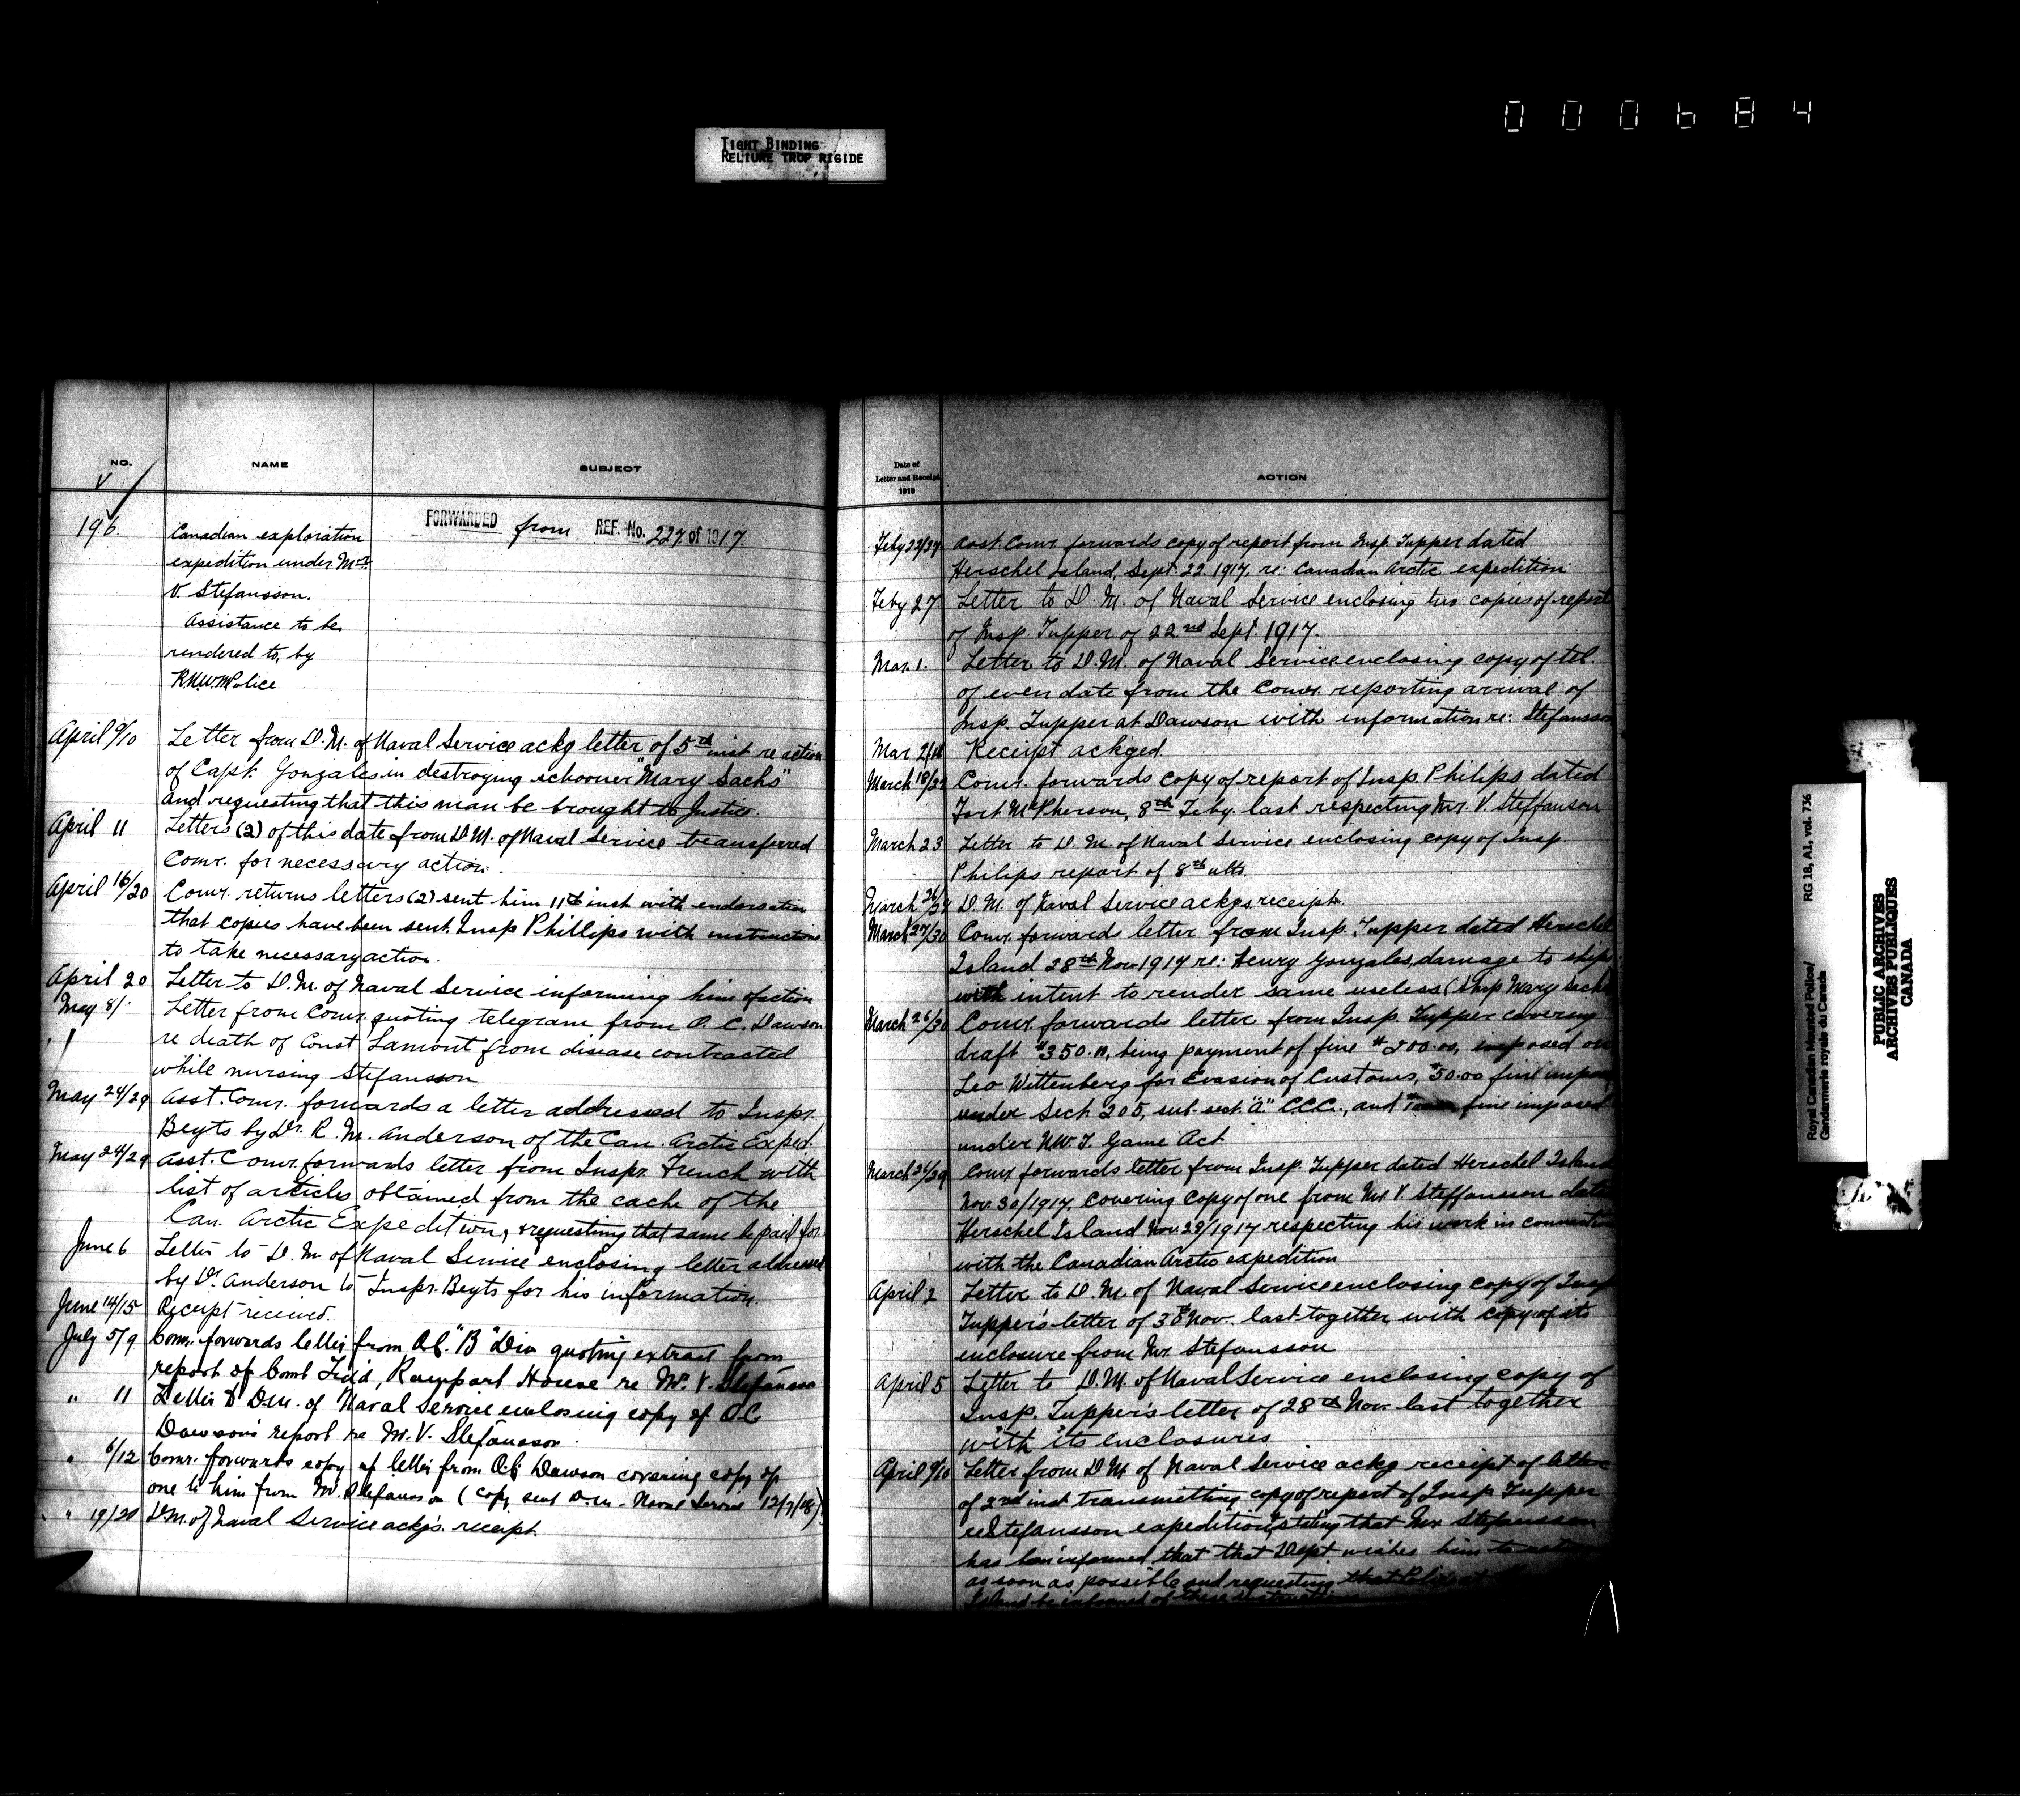 000684
TIGHT BINDING
RELIURE TROP RIGIDE
NO.
NAME
SUBJECT
196.
FORWARDED from REF. No. 227 of 1917
Canadian exploration
expedition under Mr
V. Stefansson.
Assistance to be
rendered to, by
R.N.W.M Police
April 9/10 Letter from D.M. of Naval Service ackg letter of 5th inst re action
of Capt. Gonzales in destroying schooner "Mary Sachs"
and requesting that this man be brought to Justice.
April 11 Letters (2) of this date from D.M. of Naval Service transferred
Comr. for necessary action.
April 16/20 Comr. returns letters (2) sent him 11th inst with endorsation
that copies have been sent Insp Phillips with instructions
to take necessary action.
April 20 Letter to D.M. of Naval Service informing him of action
May 8/ Letter from Comr. quoting telegram from O.C. Dawson
re death of Const Lamont from disease contracted
while nursing Stefansson
May 24/29 Asst. Comr. forwards a letter addressed to Inspr.
Beyts by Dr. R. M. Anderson of the Can. Arctic Exped.
May 24/29 Asst. Comr. forwards letter from Inspr. French with
list of articles obtained from the cache of the
Can. Arctic Expedition, & requesting that same be paid for.
June 6 Letter to D.M of Naval Service enclosing letter addressed
by Dr. Anderson to Inspr. Beyts for his information.
June 14/15 Receipt received.
July 5/9 Comr. forwards letter from O.C. "B" Div quoting extract from
report of Const Fidd, Rampart House re Mr. V. Stefansson
" 11 Letter to D.M. of Naval Service enclosing copy of O.C.
Dawson's report re Mr. V. Stefansson.
" 6/12 Comr. forwards copy of letter from O.C. Dawson covering copy of
one to him from Mr. Stefansson (Copy sent D.M. Naval Service 12/7/18).
" 19/20 D.M. of Naval Service ackgs. receipt
Date of
Letter and Receipt
1918
ACTION
Feby 22/27 Asst. Comr. forwards copy of report from Insp. Tupper dated
Herschel Island, Sept. 22. 1917. re: Canadian Arctic expedition
Feby 27. Letter to D.M. of Naval Service enclosing two copies of report
of Insp. Tupper of 22nd Sept. 1917.
Mar. 1. Letter to D.M. of Naval Service enclosing copy of tel.
of even date from the Comr. reporting arrival of
Insp. Tupper at Dawson with information re: Stefansson
Mar Receipt ackged.
March 18/22 Comr. forwards copy of report of Insp. Philips dated
Fort McPherson, 8th Feby. last respecting Mr. V. Steffanson
March 23 Letter to D.M. of Naval Service enclosing copy of Insp.
Philips report of 8th ulto.
March 26/27 D.M. of Naval Service ackgs receipt.
March 27/30 Comr. forwards letter from Insp. Tupper dated Herschel
Island 28th Nov. 1917 re: Henry Gonzales, damage to ships
with intent to render same useless (Ship Mary Sachs
March 26/30 Comr. forwards letter from Insp. Tupper covering
draft $350.00, being payment of fine $200.00, imposed on
Leo Wittenberg for Evasion of Customs, $50.00 fine
under Sect 205, sub-sect. "A." C.C.C., and fine imposed
under N.W.T. Game Act
March 26/29 Comr. forwards letter from Insp. Tupper dated Herschel Island
Nov. 30/1917. Covering copy of one from Mr. V. Steffansson dated
Herschel Island Nov. 29/1917 respecting his work in connection
with the Canadian Arctic expedition
April 2 Letter to D.M. of Naval Service enclosing copy of Insp
Tupper's letter of 30th Nov. last together with copy of its
enclosure from Mr. Stefansson
April 5 Letter to D.M. of Naval Service enclosing copy of
Insp. Tupper's letter of 28th Nov. last together
with its enclosures
April 9/10 Letter from D.M of Naval Service ackg receipt of
of 2nd inst transmitting copy of report of Insp. Tupper
re Stefansson expedition, stating that Mr. Stefansson
has been informed that that Dept wishes him to
as soon as possible and requesting that
Island be informed of these
Royal Canadian Mounted Police/
Gendarmerie royale du Canada
RG 18, A1, vol. 736
PUBLIC ARCHIVES
ARCHIVES PUBLIQUES
CANADA